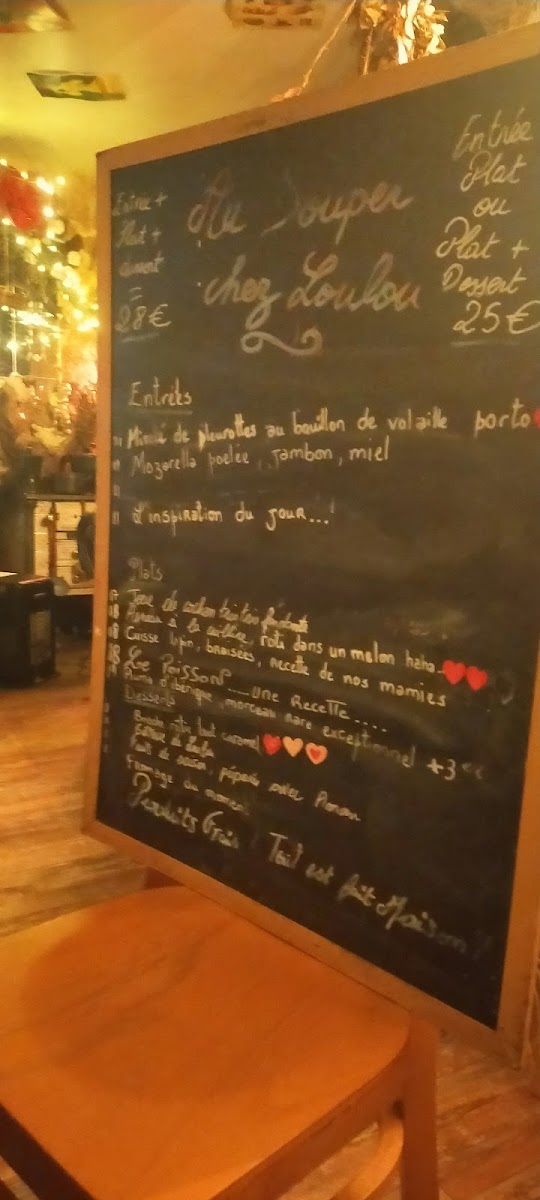 Entrée +
Plat +
dessert
=
28€
Au Souper
chez Loulou
Entrée
Plat
ou
Plat +
Dessert
25€
Entrées
de pleurottes au bouillon de volaille porto
Mozarella poelée, jambon, miel
L'inspiration du jour...
Plats
Joue de cochon
à la, roti dans un melon haha
Cuisse lapin, braisées, recette de nos mamies
Le Poisson.... une Recette.....
d'iberique, morceau rare exceptionnel +3€
Desserts
tout caramel
Fruit de saison, préparés avec Amour
Fromage du moment
Produits Frais Tout est fait Maison